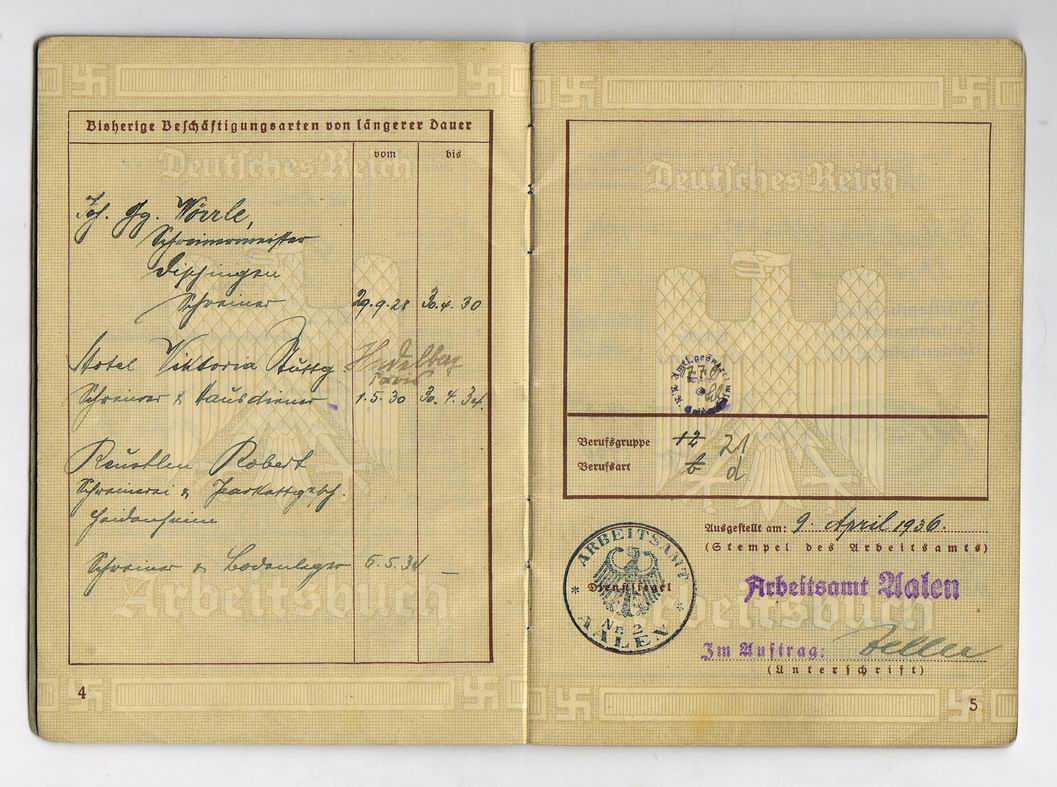 Bisherige Beschäftigungsarten von längerer Dauer
vom bis
Deutsches Reich
Joh. Gg. Wörrle,
Schreinermeister
Dischingen
Schreiner 29.9.28 30.4.30
Hotel Viktoria Stuttg Heidelberg
Schreiner & Hausdiener 1.5.30 30.4.34.
Robert
Schreinerei & Parkettgesch.
Heidenheim
Schreiner & Bodenleger 5.5.34 —
Arbeitsbuch
4
Deutsches Reich
Berufsgruppe 12 21
Berufsart b d
Ausgestellt am: 9. April 1936.
(Stempel des Arbeitsamts)
ARBEITSAMT
Dienstsiegel
Nr. 2
AALEN
Arbeitsamt Aalen
Arbeitsbuch
Im Auftrag:
(Unterschrift)
5